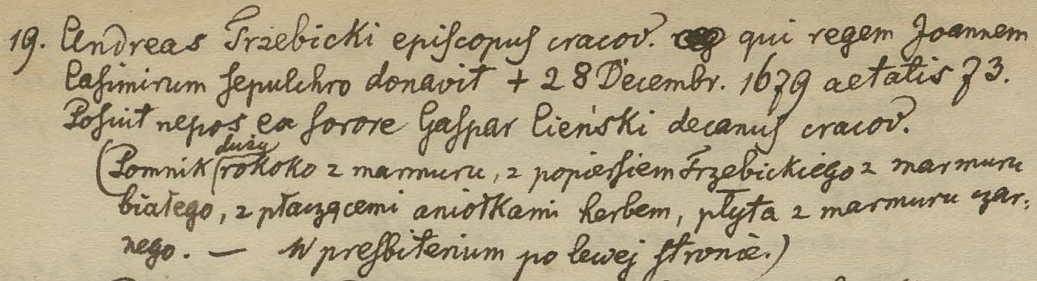 19. Andreas Trzebicki episcopus cracov. qui regem Joannem
Casimirum sepulchro donavit + 28 Decembr. 1679 aetatis 73.
Posuit nepos ex sorore Gaspar Cieński decanus cracov.
(Pomnik duży rokoko z marmuru, z popiersiem Trzebickiego z marmuru
białego, z płaczącemi aniołkami herbem, płyta z marmuru czar-
nego. — W presbiterium po lewej stronie.)